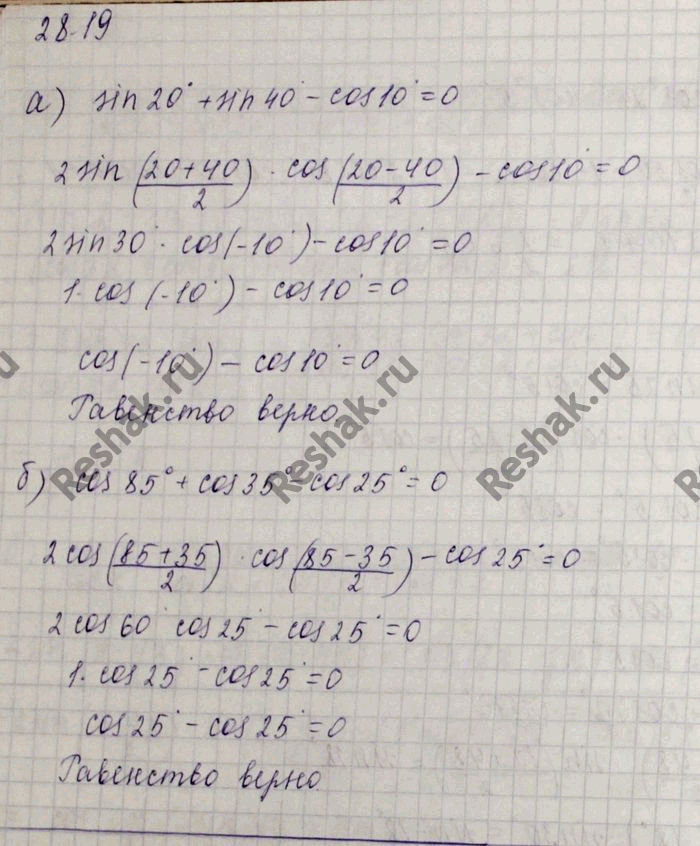 28.19
а) sin 20° + sin 40° - cos 10° = 0
2 sin (20+40)/2 · cos (20-40)/2 - cos 10° = 0
2 sin 30° · cos(-10°) - cos 10° = 0
1· cos (-10°) - cos 10° = 0
cos(-10°) - cos 10° = 0
Равенство верно
б) cos 85° + cos 35° - cos 25° = 0
2 cos (85+35)/2 · cos (85-35)/2 - cos 25° = 0
2 cos 60° cos 25° - cos 25° = 0
1· cos 25° - cos 25° = 0
cos 25° - cos 25° = 0
Равенство верно
Reshak.ru
Reshak.ru
Reshak.ru